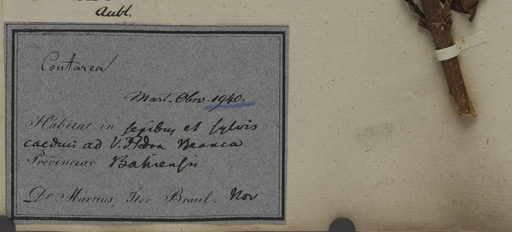 Aubl.
Coutarea
Mart. Obs. 1940.
Habitat in sepibus et sylvis
caeduis ad V. Pedra Branca
Provinciae Bahiensis
Dr. Martius Iter Brasil. Nov